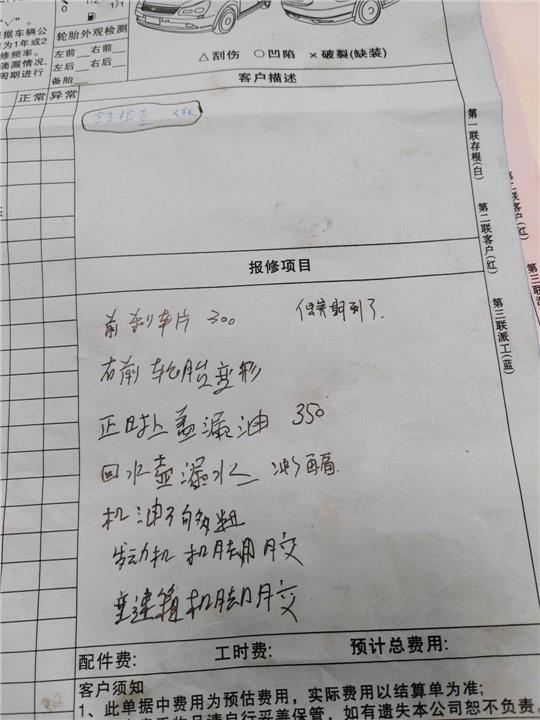 据车辆公
为1年或2
修频率。
滴漏情况,
周期进行
轮胎外观检测
左前 右前
左后 右后
备胎
△刮伤 ○凹陷 ×破裂(缺装)
正常 异常
客户描述
全车检查
第一联存根(白)
第二联客户(红)
第三联派工(蓝)
二联客户(红)
第三联派工
报修项目
前刹车片 300 保养期到了
右前轮胎变形
正时上盖漏油 350
回水壶漏水
机油
发动机 机脚胶
变速箱机脚胶
配件费: 工时费: 预计总费用:
客户须知
1、此单据中费用为预估费用，实际费用以结算单为准;
请自行妥善保管，如有遗失本公司恕不负责。